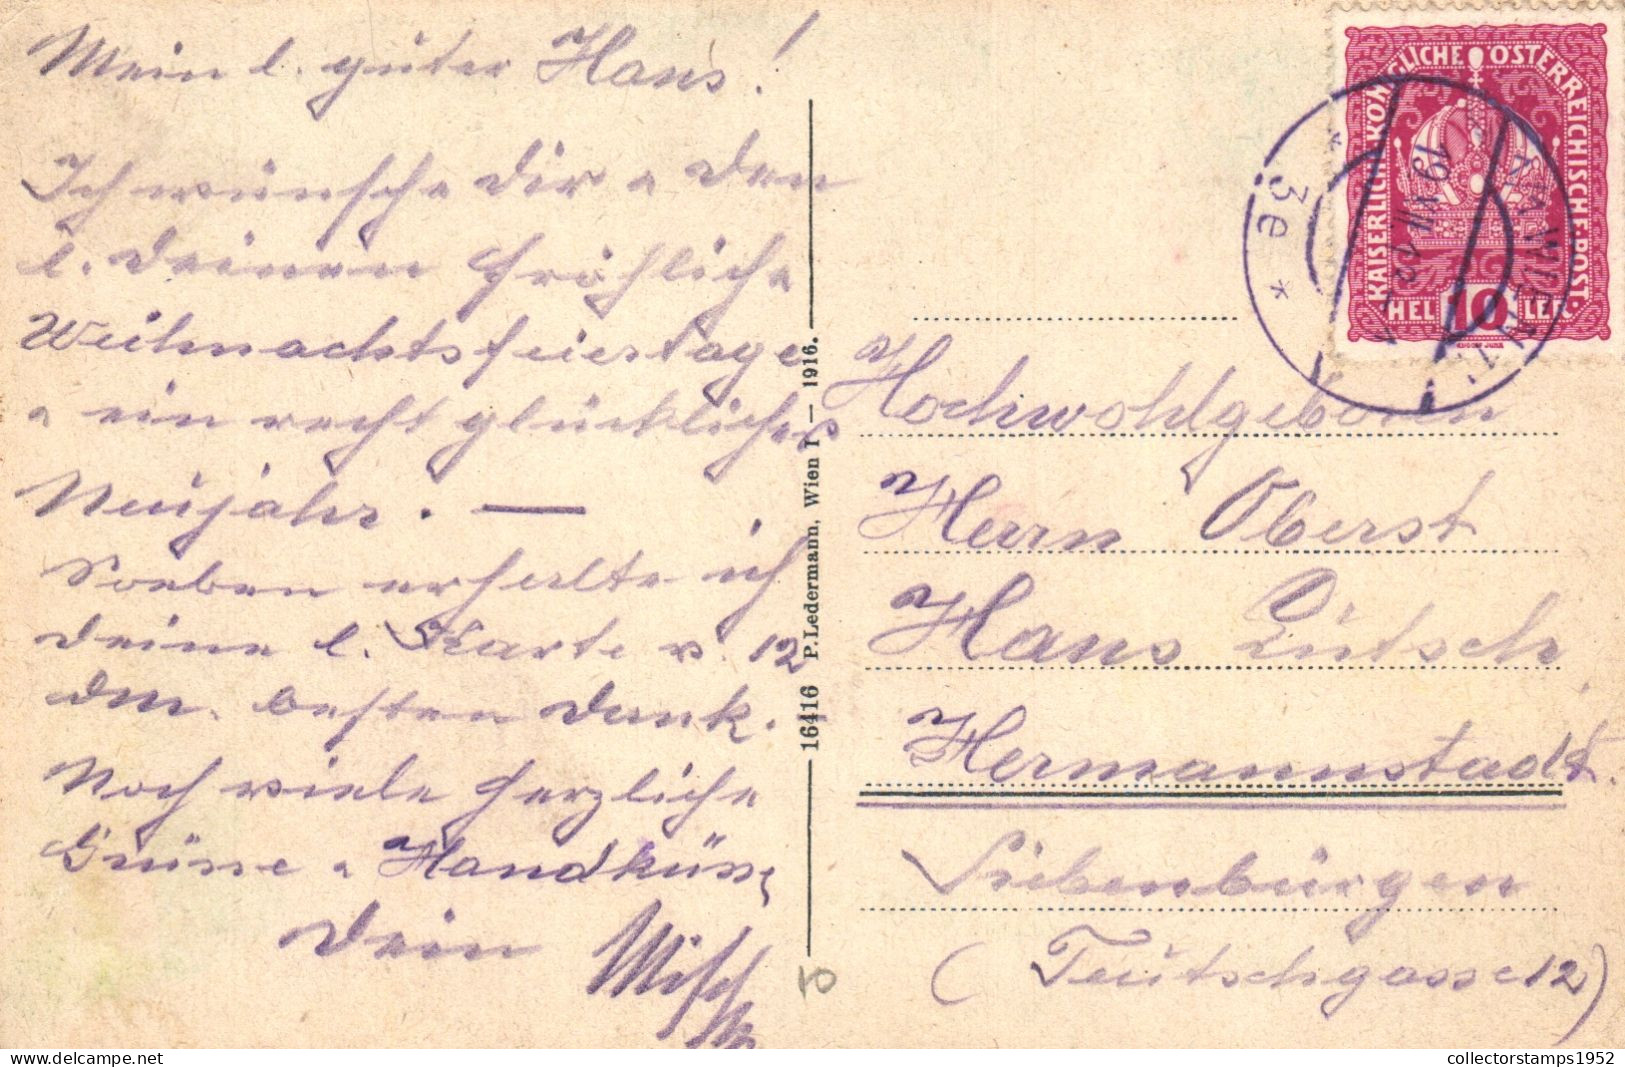 Mein l. guter Hans!
Ich wünsche Dir u den
l. Deinen fröhliche
Weihnachtsfeiertage
u ein recht glückliches
Neujahr. —
Soeben erhalte ich
Deine l. Karte v. 12
dm. besten Dank.
Noch viele herzliche
Grüsse u Handküsse
Dein
16416 P. Ledermann, Wien I — 1916.
KAISERLICH KÖNIGLICHE ÖSTERREICHISCHE POST
HEL 10 LER
* 3e *
19 XII
Hochwohlgeboren
Herrn Oberst
Hans Lutsch
Hermannstadt.
Siebenbürgen
(Teutschgasse 12)
10
collectorstamps1952